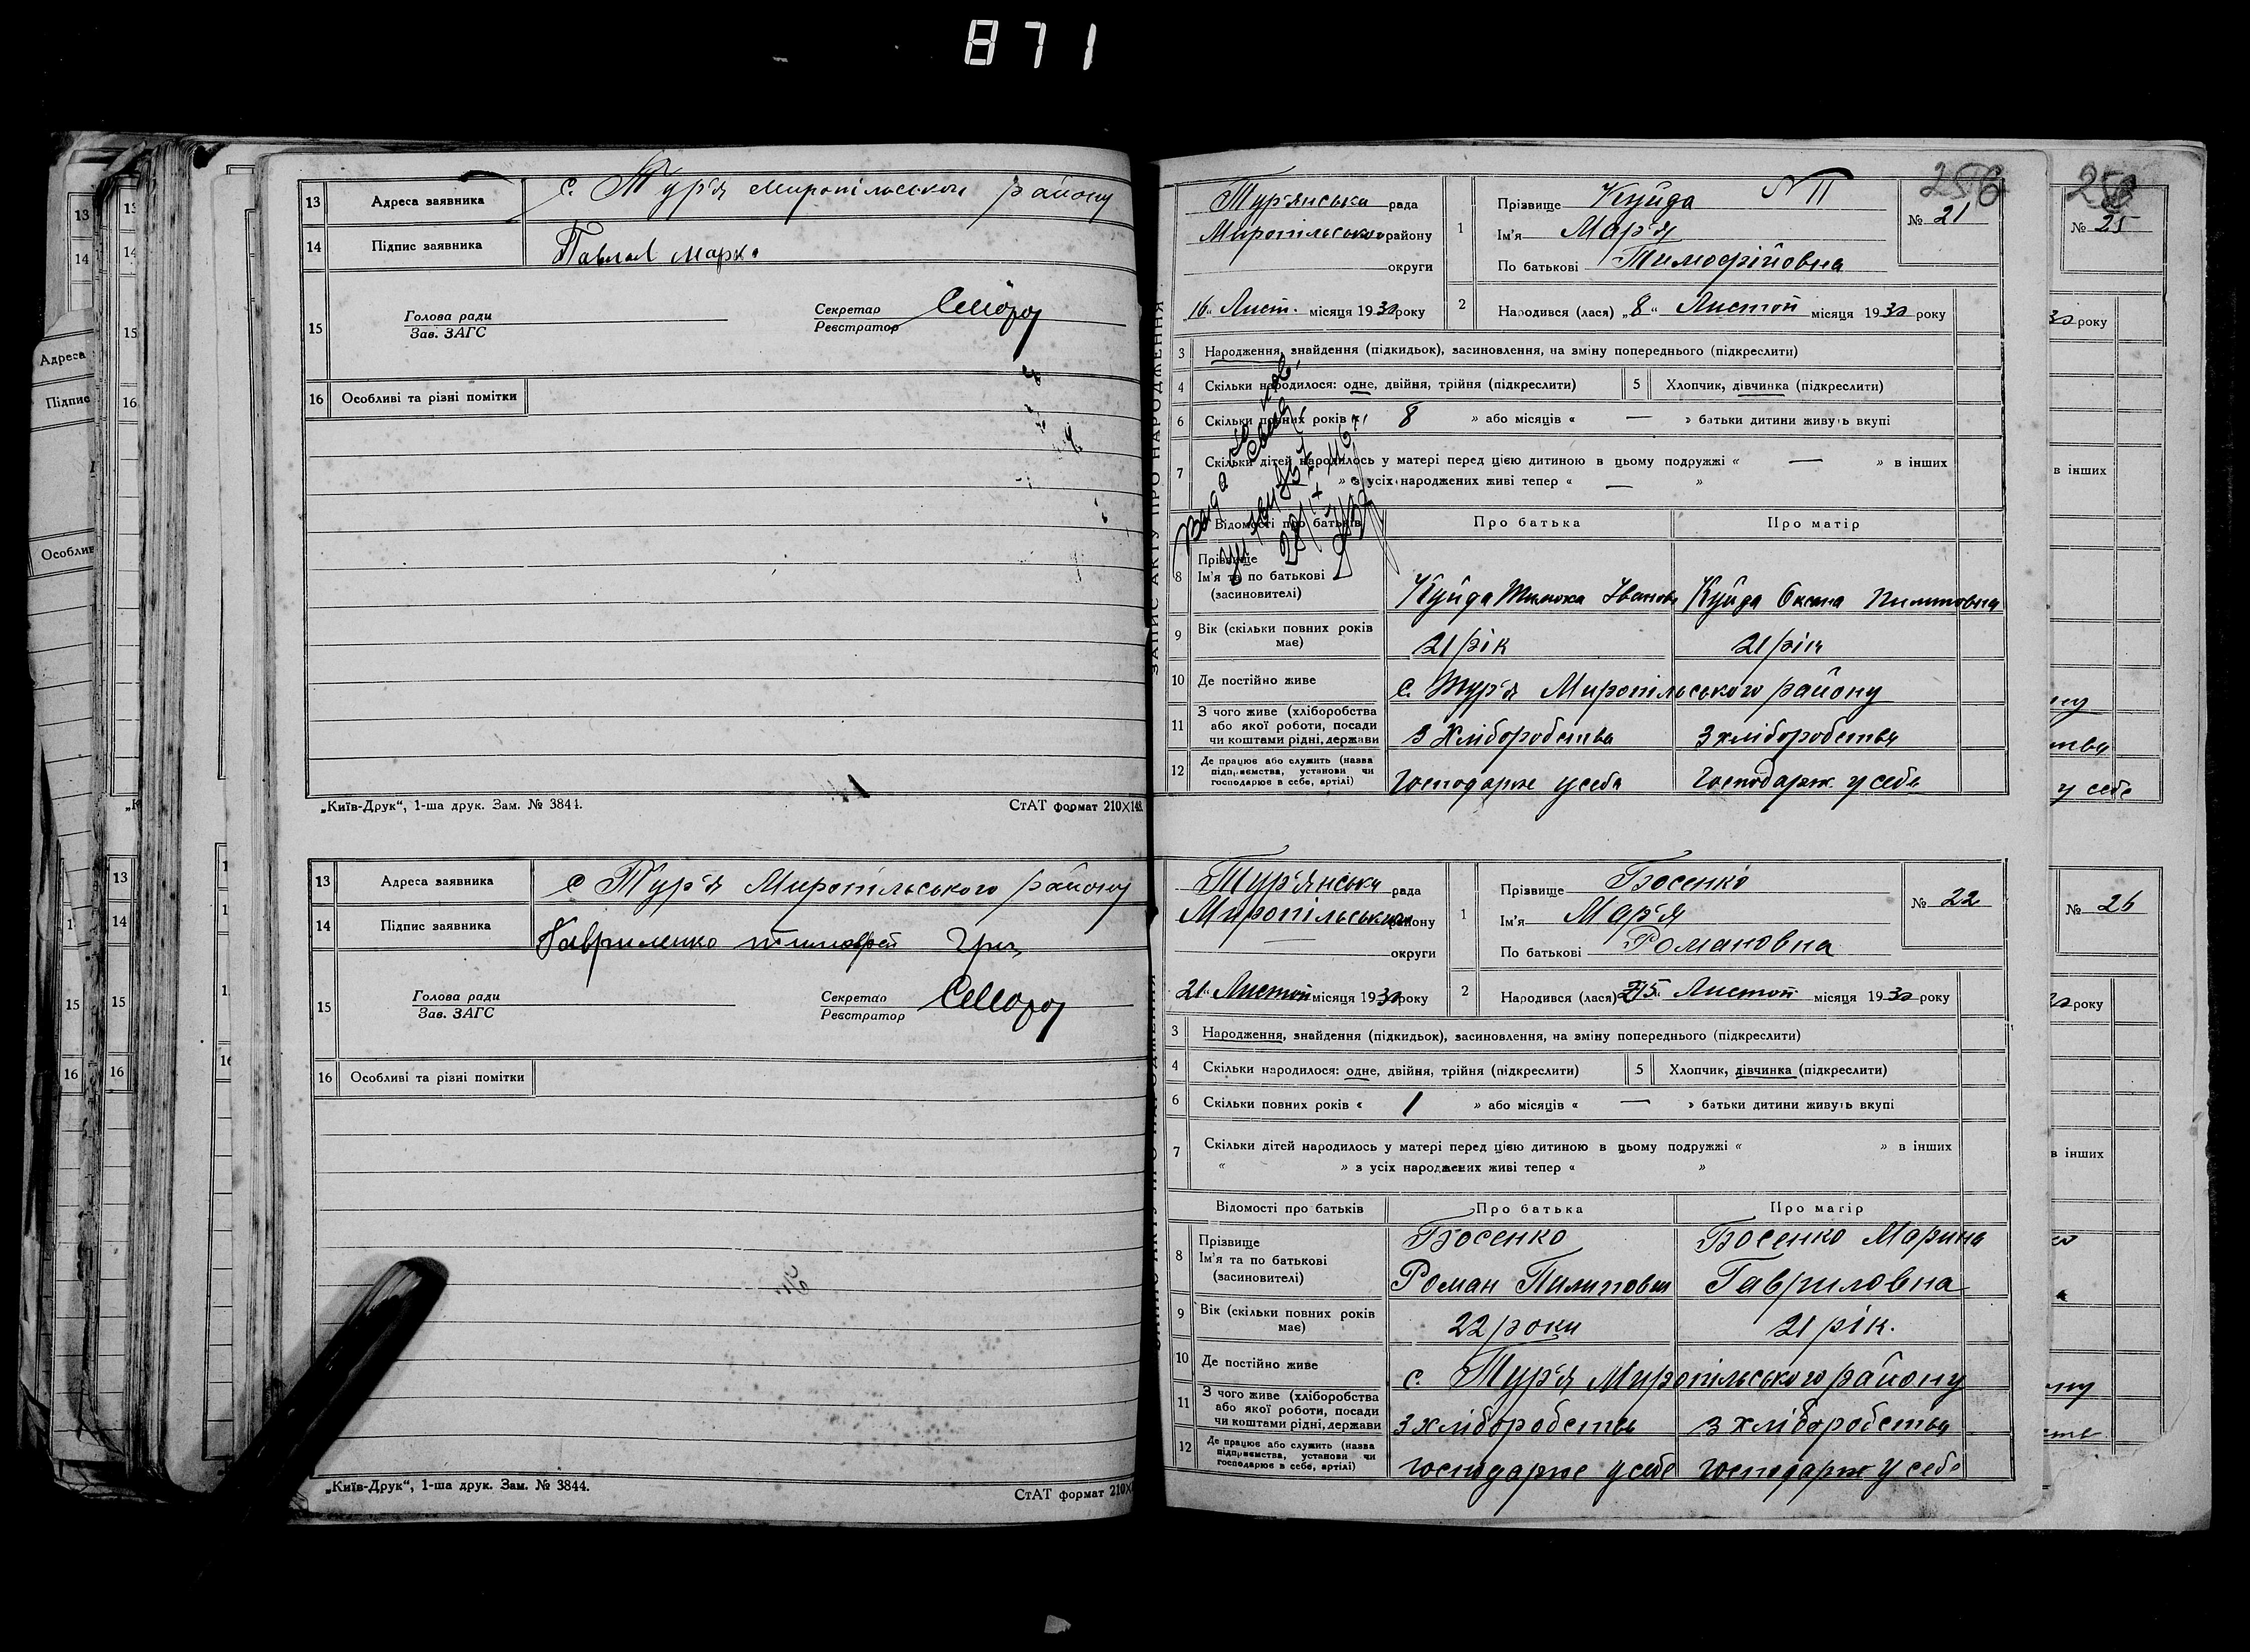 871
13 Адреса заявника с. Тур'я Миропільського району
14 Підпис заявника Павлов Марко
15 Голова ради
Зав. ЗАГС
Секретар
Реєстратор
16 Особливі та різні помітки
„Київ-Друк“, 1-ша друк. Зам. № 3844.
СтАТ формат 210×148
13 Адреса заявника с Тур'я Миропільського району
14 Підпис заявника Гавриленко тимофей Гри
15 Голова ради
Зав. ЗАГС
Секретар
Реєстратор
16 Особливі та різні помітки
„Київ-Друк“, 1-ша друк. Зам. № 3844.
СтАТ формат 210×1
ЗАПИС АКТУ ПРО НАРОДЖЕННЯ
256
Тур'янська рада
Миропільського району
округи
1 Прізвище Куйда № 11
Ім'я Мар'я
По батькові Тимофійовна
№ 21
16“ Лист. місяця 1930 року
2 Народився (лася) „8“ Листоп місяця 1930 року
3 Народження, знайдення (підкидьок), засиновлення, на зміну попереднього (підкреслити)
4 Скільки народилося: одне, двійня, трійня (підкреслити)
5 Хлопчик, дівчинка (підкреслити)
6 Скільки повних років « 8 » або місяців « — » батьки дитини живуть вкупі
7 Скільки дітей народилось у матері перед цією дитиною в цьому подружжі « — » в інших
» з усіх народжених живі тепер « — »
Відомості про батьків Про батька Про матір
8 Прізвище
Ім'я та по батькові
(засновителі)
Куйда Тимоха Іванов Куйда Оксана Пилиповна
9 Вік (скільки повних років має) 21 рік 21 рік
10 Де постійно живе с. Тур'я Миропільського району
11 З чого живе (хліборобства
або якої роботи, посади
чи коштами рідні, держави
З Хліборобства З хліборобства
12 Де працює або служить (назва
підприємства, установи чи
господарює в себе, артілі)
Господарює у себе Господарює у себе
Тур'янська рада
Миропільського району
округи
1 Прізвище Босенко
Ім'я Мар'я
По батькові Романовна
№ 22
21“ Листоп місяця 1930 року
2 Народився (лася) Листоп місяця 1930 року
3 Народження, знайдення (підкидьок), засиновлення, на зміну попереднього (підкреслити)
4 Скільки народилося: одне, двійня, трійня (підкреслити)
5 Хлопчик, дівчинка (підкреслити)
6 Скільки повних років « 1 » або місяців « — » батьки дитини живуть вкупі
7 Скільки дітей народилось у матері перед цією дитиною в цьому подружжі « » в інших
« » з усіх народжених живі тепер « »
Відомості про батьків Про батька Про матір
8 Прізвище
Ім'я та по батькові
(засиновителі)
Босенко Босенко Марина
Роман Пилипович Гавриловна
9 Вік (скільки повних років має) 22 роки 21 рік.
10 Де постійно живе с. Тур'я Миропільського району
11 З чого живе (хліборобства
або якої роботи, посади
чи коштами рідні, держави
З хліборобства З хліборобства
12 Де працює або служить (назва
підприємства, установи чи
господарює в себе, артілі)
господарює у себе господарює у себе
№ 25
року
в інших
у себе
№ 26
року
в інших